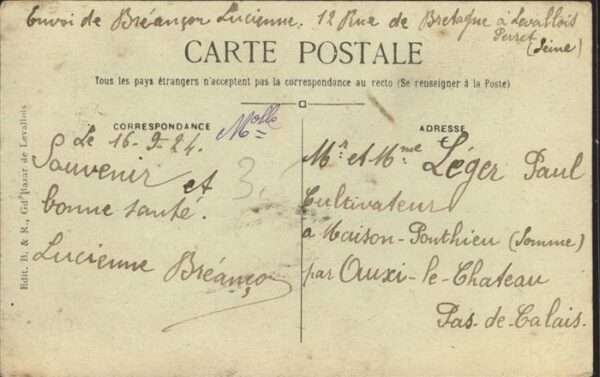 Envoi de Bréançon Lucienne. 12 Rue de Bretagne à Levallois
Perret
(Seine)
CARTE POSTALE
Tous les pays étrangers n'acceptent pas la correspondance au recto (Se renseigner à la Poste)
CORRESPONDANCE
Le 16-9-24.
Souvenir et
bonne santé.
Lucienne Bréançon
Molle
3.
ADRESSE
Mr et Mme Léger Paul
Cultivateur
à Maison-Ponthieu (Somme)
par Auxi-le-Chateau
Pas-de-Calais.
Edit. B. & R., Gd Bazar de Levallois